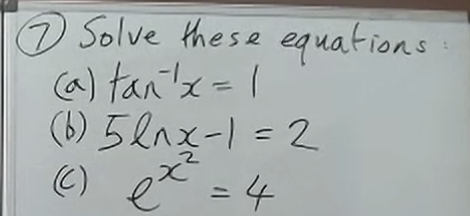 ⑦ Solve these equations:
(a) tan⁻¹x = 1
(b) 5lnx-1 = 2
(c) e^x² = 4